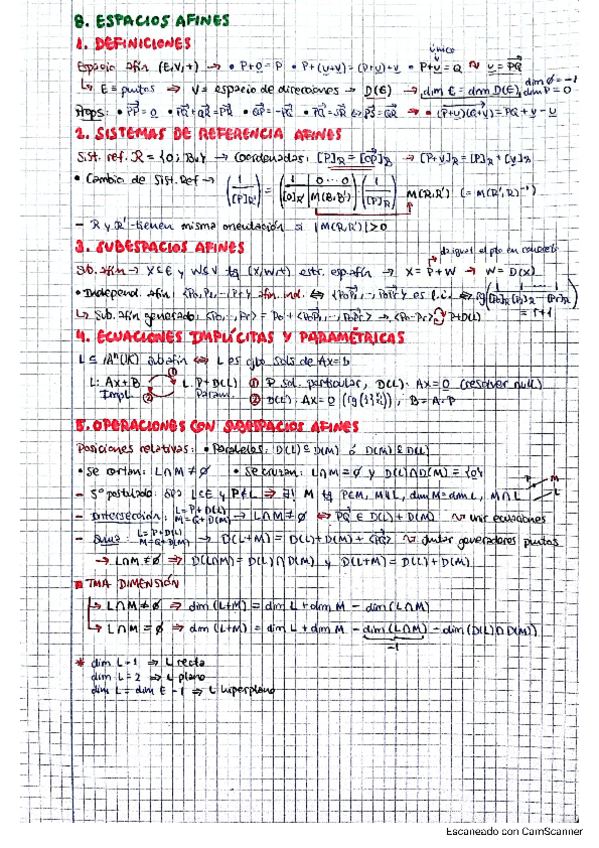 8. ESPACIOS AFINES
1. DEFINICIONES
único
Espacio afín (E,V,+) → • P+0=P • P+(u+v)=(P+u)+v • P+v=Q ~ v=PQ
↳ E=puntos → V=espacio de direcciones → D(E) → dim E = dim D(E), dim ∅=-1, dim P=0
Props: • PP=0 • PQ+QR=PR • QP=-PQ • PQ=JR ⇔ PS=QR → • (P+u)(Q+v)=PQ+v-u
2. SISTEMAS DE REFERENCIA AFINES
Sist. ref. R={O; Bv} → Coordenadas: [P]R=[OP]R → [P+v]R=[P]R+[v]R
• Cambio de Sist. Ref → (1 / [P]R') = (1 | 0...0 / [O]R' | M(B,B')) · (1 / [P]R) M(R,R') (=M(R',R)⁻¹)
- R y R' tienen misma orientación si |M(R,R')|>0
3. SUBESPACIOS AFINES
da igual el pto en concreto
Sub. afín → X⊆E y W≤V tq (X,W,+) estr. esp. afín → X=P+W → W=D(X)
• Independ. afín: {P0,P1,...,Pr} afín. ind. ⇔ {P0P1,...,P0Pr} es l.i. ⇔ rg(1 1 ... 1 / [P0]R [P1]R ... [Pr]R) = r+1
↳ Sub. afín generado: <P0,...,Pr> = P0 + <P0P1,...,P0Pr> → <P0-Pr> P+D(L)
4. ECUACIONES IMPLÍCITAS Y PARAMÉTRICAS
L⊆Aⁿ(K) sub afín ⇔ L es cjto sols de Ax=b
L: Ax+B L: P+D(L) ① P sol. particular, D(L): Ax=0 (resolver null)
Impl. Param. ② D(L): Ax=0, B=A·P
5. OPERACIONES CON SUBESPACIOS AFINES
Posiciones relativas: • Paralelos: D(L)⊆D(M) ó D(M)⊆D(L)
• Se cortan: L∩M≠∅ • Se cruzan: L∩M=∅ y D(L)∩D(M)={0}
- 5º postulado: L⊆E y P∉L ⇒ ∃! M tq P∈M, M∥L, dim M=dim L, M∩L P M L
- Intersección: L=P+D(L) M=Q+D(M) → L∩M≠∅ ⇔ PQ∈D(L)+D(M) ~ unir ecuaciones
- Suma: L=P+D(L) M=Q+D(M) → D(L+M)=D(L)+D(M)+<PQ> ~ juntar generadores puntos
→ L∩M≠∅ ⇒ D(L∩M)=D(L)∩D(M) y D(L+M)=D(L)+D(M)
TMA DIMENSIÓN
↳ L∩M≠∅ ⇒ dim(L+M)=dim L+dim M-dim(L∩M)
↳ L∩M=∅ ⇒ dim(L+M)=dim L+dim M-dim(L∩M)-dim(D(L)∩D(M))
-1
* dim L=1 ⇒ L recta
dim L=2 ⇒ L plano
dim L=dim E-1 ⇒ L hiperplano
Escaneado con CamScanner